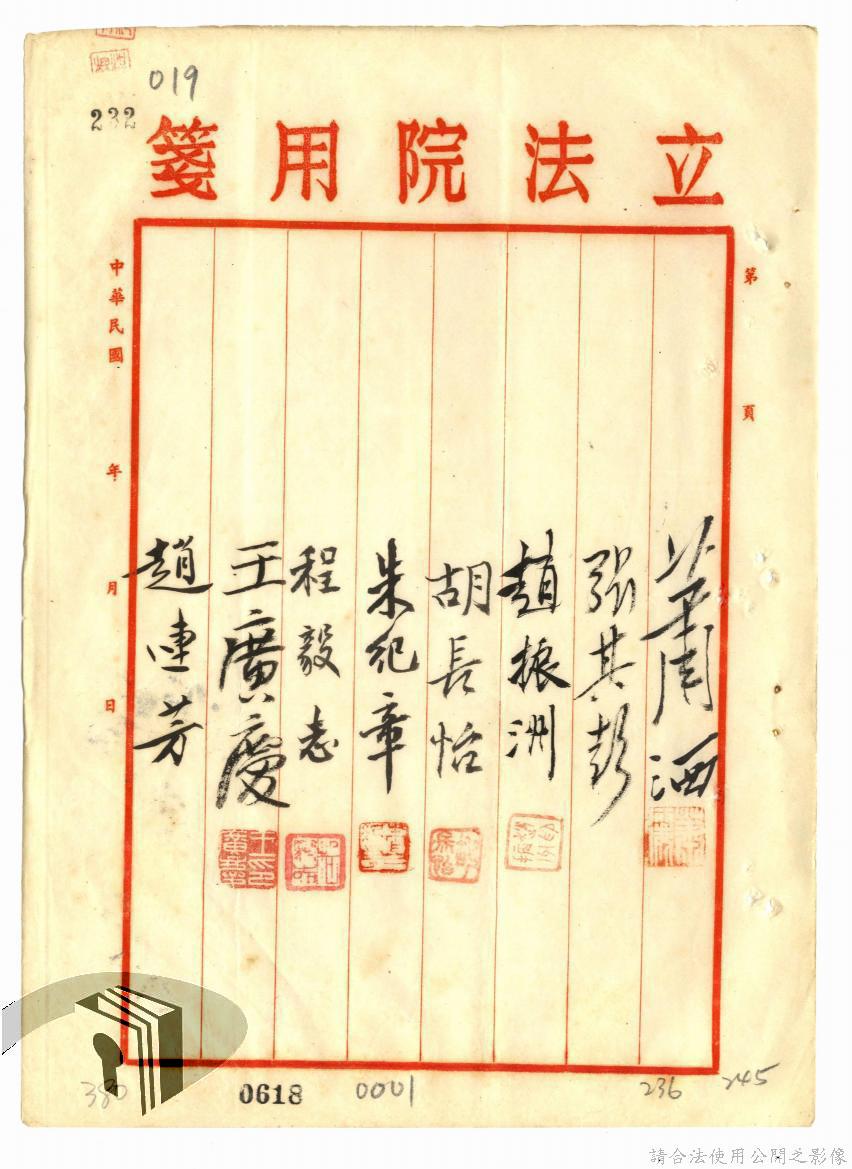 019
232
立法院用箋
第 頁
蕭洒
張其彭
趙振洲
胡長怡
朱紀章
程毅志
王廣慶
趙連芳
中華民國 年 月 日
380
0618
0001
236
245
請合法使用公開之影像